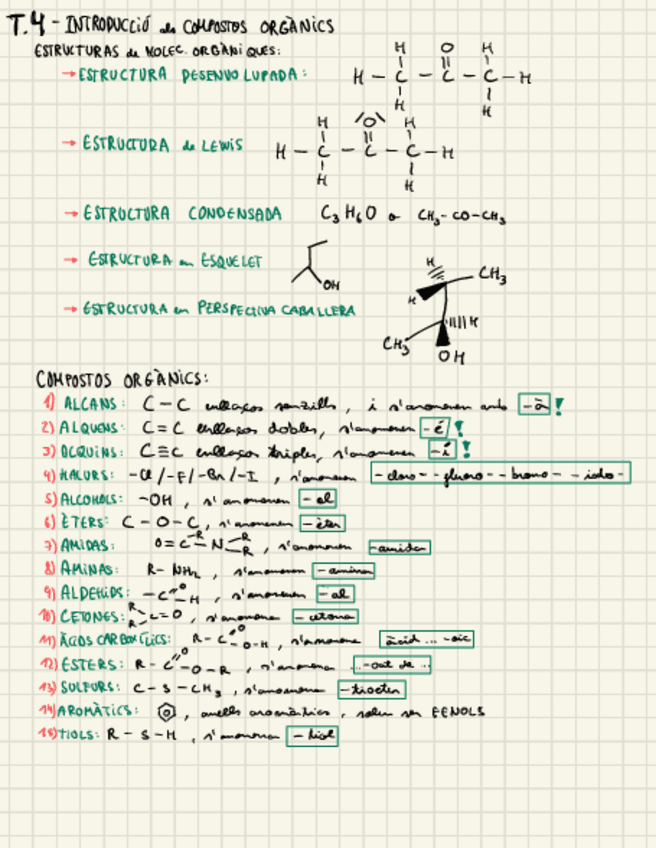 T.4 - INTRODUCCIÓ als COMPOSTOS ORGÀNICS
ESTRUCTURAS de MOLEC. ORGÀNIQUES:
→ ESTRUCTURA DESENVOLUPADA:
H O H
H - C - C - C - H
H H
→ ESTRUCTURA de LEWIS
H O H
H - C - C - C - H
H H
→ ESTRUCTURA CONDENSADA C₃H₆O o CH₃-CO-CH₃
→ ESTRUCTURA en ESQUELET
OH
→ ESTRUCTURA en PERSPECTIVA CABALLERA
H CH₃
H
H
CH₃
OH
COMPOSTOS ORGÀNICS:
1) ALCANS: C-C enllaços senzills, i s'anomenen amb -à !
2) ALQUENS: C=C enllaços dobles, s'anomenen -é !
3) ALQUINS: C≡C enllaços triples, s'anomenen -í !
4) HALURS: -Cl/-F/-Br/-I, s'anomenen -cloro- -fluoro- -bromo- -iodo-
5) ALCOHOLS: -OH, s'anomenen -ol
6) ÈTERS: C-O-C, s'anomenen -èter
7) AMIDAS: O=C-N, s'anomenen -amida
8) AMINAS: R-NH₂, s'anomenen -amina
9) ALDEHIDS: -C=O-H, s'anomenen -al
10) CETONES: R R C=O, s'anomena -cetona
11) ÀCIDS CARBOXÍLICS: R-C=O-O-H, s'anomena àcid ... -oic
12) ESTERS: R-C=O-O-R, s'anomena ...-oat de ...
13) SULFURS: C-S-CH₃, s'anomena
14) AROMÀTICS: , anells aromàtics, solen ser FENOLS
15) TIOLS: R-S-H, s'anomena -tiol